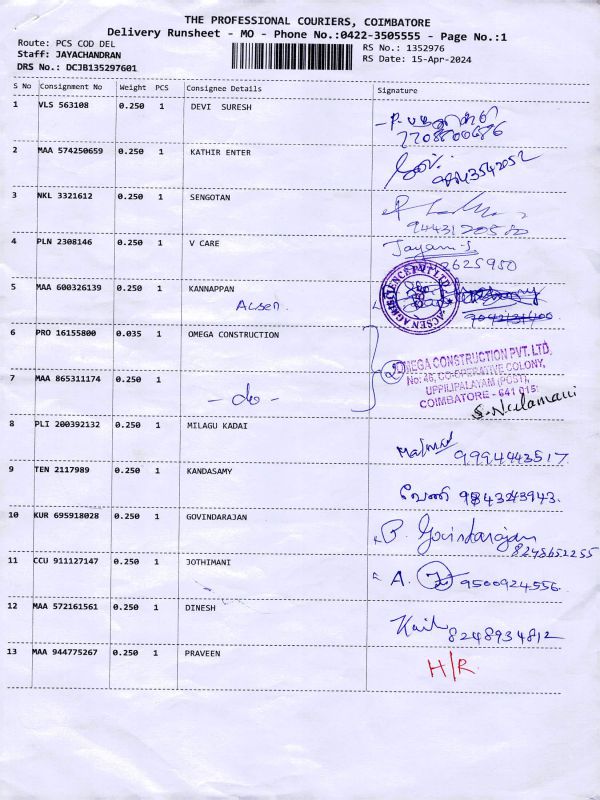 THE PROFESSIONAL COURIERS, COIMBATORE
Delivery Runsheet - MO - Phone No.:0422-3505555 - Page No.:1
Route: PCS COD DEL
Staff: JAYACHANDRAN
DRS No.: DCJB135297601
RS No.: 1352976
RS Date: 15-Apr-2024
S No Consignment No Weight PCS Consignee Details Signature
1 VLS 563108 0.250 1 DEVI SURESH
7708800686
2 MAA 574250659 0.250 1 KATHIR ENTER
3 NKL 3321612 0.250 1 SENGOTAN
4 PLN 2308146 0.250 1 V CARE Jayani.S
5 MAA 600326139 0.250 1 KANNAPPAN
Acsen
ACSEN AGRISCIENCE PVT LTD
6 PRO 16155800 0.035 1 OMEGA CONSTRUCTION
2
OMEGA CONSTRUCTION PVT. LTD,
No: 46, CO-OPERATIVE COLONY,
UPPILIPALAYAM (POST),
COIMBATORE - 641 015.
7 MAA 865311174 0.250 1
- do -
S. Neelamani
8 PLI 200392132 0.250 1 MILAGU KADAI
9994443517
9 TEN 2117989 0.250 1 KANDASAMY
வேணி 9843243943.
10 KUR 695918028 0.250 1 GOVINDARAJAN
B. Govindarajan
8248652255
11 CCU 911127147 0.250 1 JOTHIMANI
A. 9500924556.
12 MAA 572161561 0.250 1 DINESH
Kail 8248934812
13 MAA 944775267 0.250 1 PRAVEEN
H/R